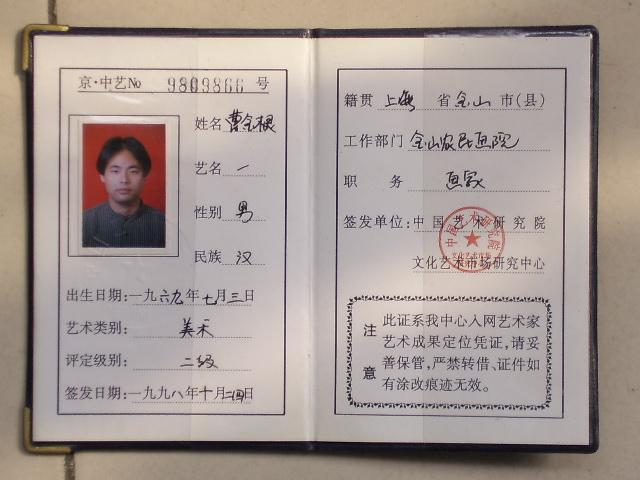 京·中艺No 9809866 号
姓名 曹金根
艺名 一
性别 男
民族 汉
出生日期:一九六九年七月三日
艺术类别: 美术
评定级别: 二级
签发日期:一九九八年十月二四日
籍贯 上海 省金山市(县)
工作部门 金山农民画院
职 务 画家
签发单位:中国艺术研究院
文化艺术市场研究中心
中国艺术研究院
注意
此证系我中心入网艺术家
艺术成果定位凭证,请妥
善保管,严禁转借、证件如
有涂改痕迹无效。